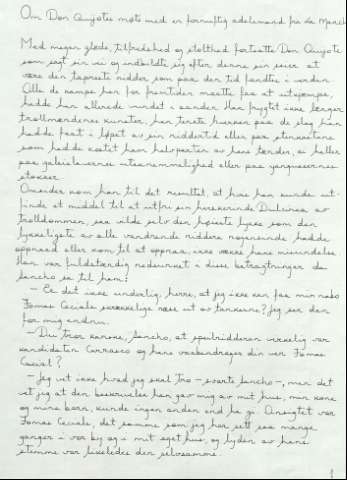 Om Don Quijotes møte med en fornuftig adelsmand fra la Manch
Med megen glæde, tilfredshed og stolthed fortsatte Don Quijote
som sagt sin vei og indbildte sig efter denne sin seier at
være den tapreste ridder som paa den tid fandtes i verden.
Alle de kampe han for fremtiden maatte faa at utkjæmpe,
hadde han allerede vundet i aanden. Han frygtet ikke længer
trollmændenes kunster, han tænkte hverken paa de slag han
hadde faat i løpet av sin riddertid eller paa stenkastene
som hadde kostet ham halvparten av hans tænder, ei heller
paa galeislavernes utaknemmelighed eller paa yangueserenes
stokker.
Omsider kom han til det resultat, at hvis han kunde ut-
finde et middel til at utfri sin herskerinde Dulcinea av
trolddommen, saa vilde selv den høieste lykke som den
lykkeligste av alle vandrende riddere nogensinde hadde
opnaaed eller kom til at opnaa, ikke vække hans misundelse.
Han var fuldstændig nedsunket i disse betragtninger da
Sancho sa til ham:
- Er det ikke underlig, herre, at jeg ikke kan faa min nabo
Tomas Cecials skrækkelige næse ut av tankerne? Jeg ser den
for mig endnu.
- Du tror kanske, Sancho, at speilridderen virkelig var
kandidaten Carrasco og hans vaabendrager din ven Tomas
Cecial?
- Jeg vet ikke hvad jeg skal tro - svarte Sancho -, men det
vet jeg at den beskrivelse han gav mig av mit hus, min kone
og mine barn, kunde ingen anden end ha gi. Ansigtet var
Tomas Cecials, det samme som jeg har sett saa mange
ganger i vor by og i mit eget hus, og lyden av hans
stemme var likeledes den selvsamme.
1